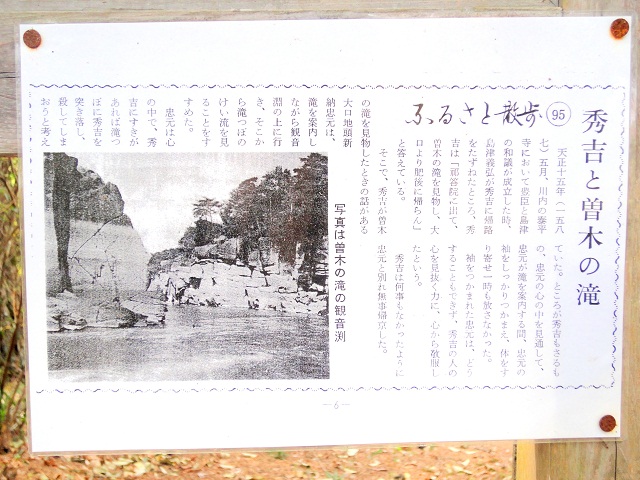 秀吉と曽木の滝
ふるさと散歩 95
天正十五年(一五八
七)五月、川内の泰平
寺において豊臣と島津
の和議が成立した時、
島津義弘が秀吉に帰路
をたずねたところ、秀
吉は「祁答院に出て、
曽木の滝を見物し、大
口より肥後に帰らん」
と答えている。
そこで、秀吉が曽木
の滝を見物したときの話がある
大口地頭新
納忠元は、
滝を案内し
ながら観音
淵の上に行
き、そこか
ら滝つぼの
けい流を見
ることをす
すめた。
忠元は心
の中で、秀
吉にすきが
あれば滝つ
ぼに秀吉を
突き落し、
殺してしま
おうと考え
ていた。ところが秀吉もさるも
の、忠元の心の中を見通して、
忠元が滝を案内する間、忠元の
袖をしっかりつかまえ、体をす
り寄せ一時も放さなかった。
袖をつかまれた忠元は、どう
することもできず、秀吉の人の
心を見抜く力に、心から敬服し
たという。
秀吉は何事もなかったように
忠元と別れ無事帰京した。
写真は曽木の滝の観音渕
—6—